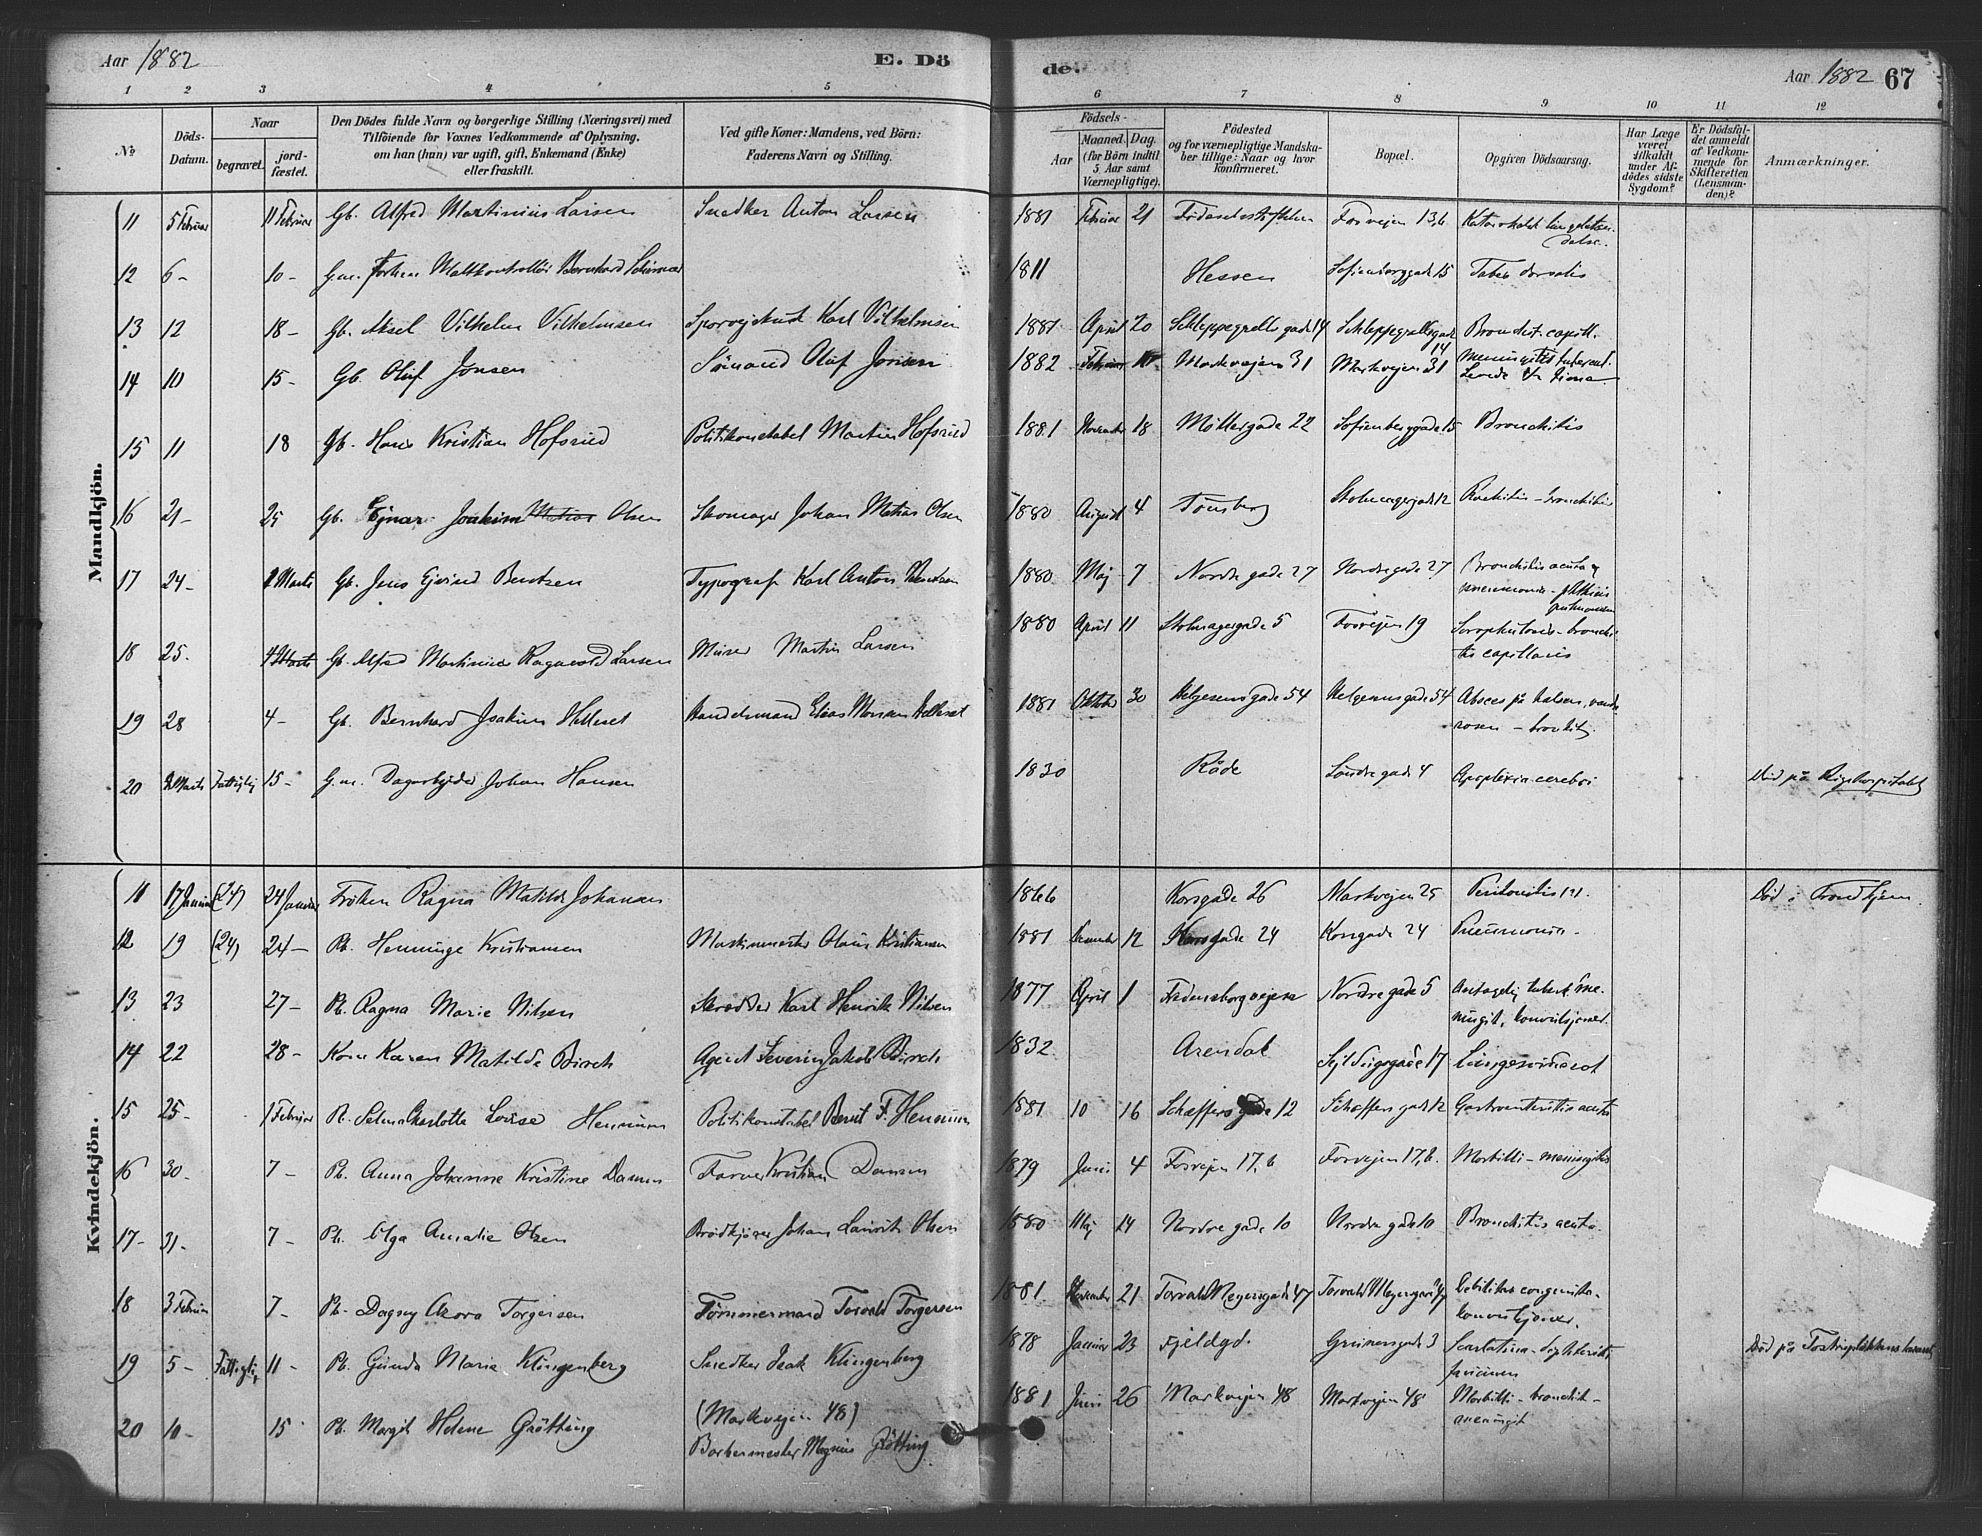 Aar 1882
E. Dö
de.
Aar 1882 67
1 2 3 4 5 6 7 8 9 10 11 12
No
Döds-Datum.
Naar
begravet.
jord-fæstet.
Den Dödes fulde Navn og borgerlige Stilling (Næringsvei) med
Tilföiende for Voxnes Vedkommende af Oplysning,
om han (hun) var ugift, gift, Enkemand (Enke)
eller fraskilt.
Ved gifte Koner: Mandens, ved Börn:
Faderens Navn og Stilling.
Födsels-
Aar
Maaned.
Dag.
(for Börn indtil
5 Aar samt
Værnepligtige).
Födested
og for værnepligtige Mandska-
ber tillige: Naar og hvor
konfirmeret.
Bopæl.
Opgiven Dödsaarsag.
Har Læge
været
tilkaldt
under Af-
dödes sidste
Sygdom?
Er Dödsfal-
det anmeldt
af Vedkom-
mende for
Skifteretten
(Lensman-
den)?
Anmærkninger.
Mandkjön.
11 5 Februar 11 Februar Gb. Alfred Martinius Larsen Snedker Anton Larsen 1881 Februar 21 Fødselsstiftelsen Fosvejen 13,b.
12 6 - 10 - G.m. Maltkontrollør Bernhard 1811 Hessen Sofienberggade 15 Tabes dorsalis
13 12 18 - Gb. Aksel Vilhelm Vilhelmsen Karl Vilhelmsen 1881 April 20 Schleppegrells gade 14 Schleppegrellsgade 14 Bronchit. capill.
14 10 15 - Gb. Oluf Jonsen Sömand Oluf Jonsen 1882 Februar 10 Markvejen 31 Markvejen 31
15 11 18 Gb. Hans Kristian Hofsrud Politikonstabel Martin Hofsrud 1881 November 18 Möllergade 22 Sofienberggade 15 Bronchitis
16 21 - 25 Gb. Ejnar Joakim Matias Olsen Skomager Johan Matias Olsen 1880 August 4 Tønsberg Stolmagergade 12 Rachitis - bronchitis
17 24 - 1 Marts Gb. Jens Ejvind Bentzen Typograf Karl Anton Bentzen 1880 Maj 7 Nordregade 27 Nordregade 27 Bronchitis acuta og
pneumonia - phthisis
pulmonum
18 25. 4 Marts Gb. Alfred Martinius Ragnvald Larsen Murer Martin Larsen 1880 April 11 Stolmagergade 5 Fosvejen 19 Scrophulosis - bronchi-
tis capillaris
19 28 4 - Gb. Bernhard Joakim Helleset Handelsmand Elias Helleset 1881 Oktober 30 Helgesens gade 54 Helgesensgade 54 Absces på halsen,
rosen -
20 2 Marts Fattiglig 15 - G.m. Dagarbejder Johan Hansen 1830 Råde Söndregade 4 Apoplexia cerebri Död på Rigshospitalet
Kvindekjön.
11 17 Januar (24) 24 Januar Fröken Ragna Matilde Johansen 1866 Korsgade 26 Markvejen 25 Peritonitis Död i Trondhjem.
12 19 (24) 24 - Pb. Henninge Kristiansen Maskinmester Olaus Kristiansen 1881 December 12 Korsgade 24 Korsgade 24 Pneumonia -
13 23 27 - Pb. Ragna Marie Nilsen Skrædder Karl Henrik Nilsen 1877 April 1 Fredensborgvejen Nordregade 5 Antagelig tuberk. me-
ningit, konvulsjoner.
14 22 28 - Kone Karen Matilde Birch Agent Severin Jakob Birch 1832 Arendal Sejldugsgade 17
15 25 - 1 Februar Pb. Selma Charlotte Lovise Hennum Politikonstabel Bernt F. Hennum 1881 10 16 Schæffersgade 12 Schæffersgade 12 Gastroenteritis acuta
16 30 - 7 - Pb. Anna Johanne Kristine Damm Farver Kristian Damm 1879 Juni 4 Fosvejen 17,b Fosvejen 17,b. Morbilli - meningitis
17 - 31 - 7 - Pb. Olga Amalie Olsen Brödkjörer Johan Laurits Olsen 1880 Maj 24 Nordre gade 10 Nordre gade 10 Bronchitis acuta.
18 3 Februar 7 - Pb. Dagny Aurora Torgersen Tömmermand Torvald Torgersen 1881 November 21 Torvald Meyersgade 47 Torvald Meyersgade 47 Debilitas congenita -
konvulsjoner.
19 5 - Fattiglig 11 - Pb. Gunda Marie Klingenberg Snedker Isak Klingenberg 1878 Januar 23 Fjeldgd. Grünersgade 3 Scarlatina - diphtheritis
faucium Död på
20 10 - 15 Pb. Margit Helene Grötting (Markvejen 48)
Barbermester Magnus Grötting 1881 Juni 26 Markvejen 48 Markvejen 48 Morbilli - bronchit -
meningit